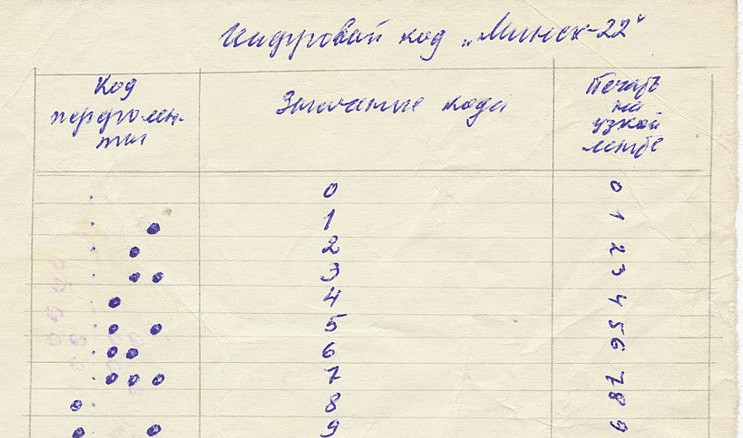 Цифровой код „Минск-22"
Код перфолен-ты
Значение кода
Печать на узкой ленте
0 0
1 1
2 2
3 3
4 4
5 5
6 6
7 7
8 8
9 9